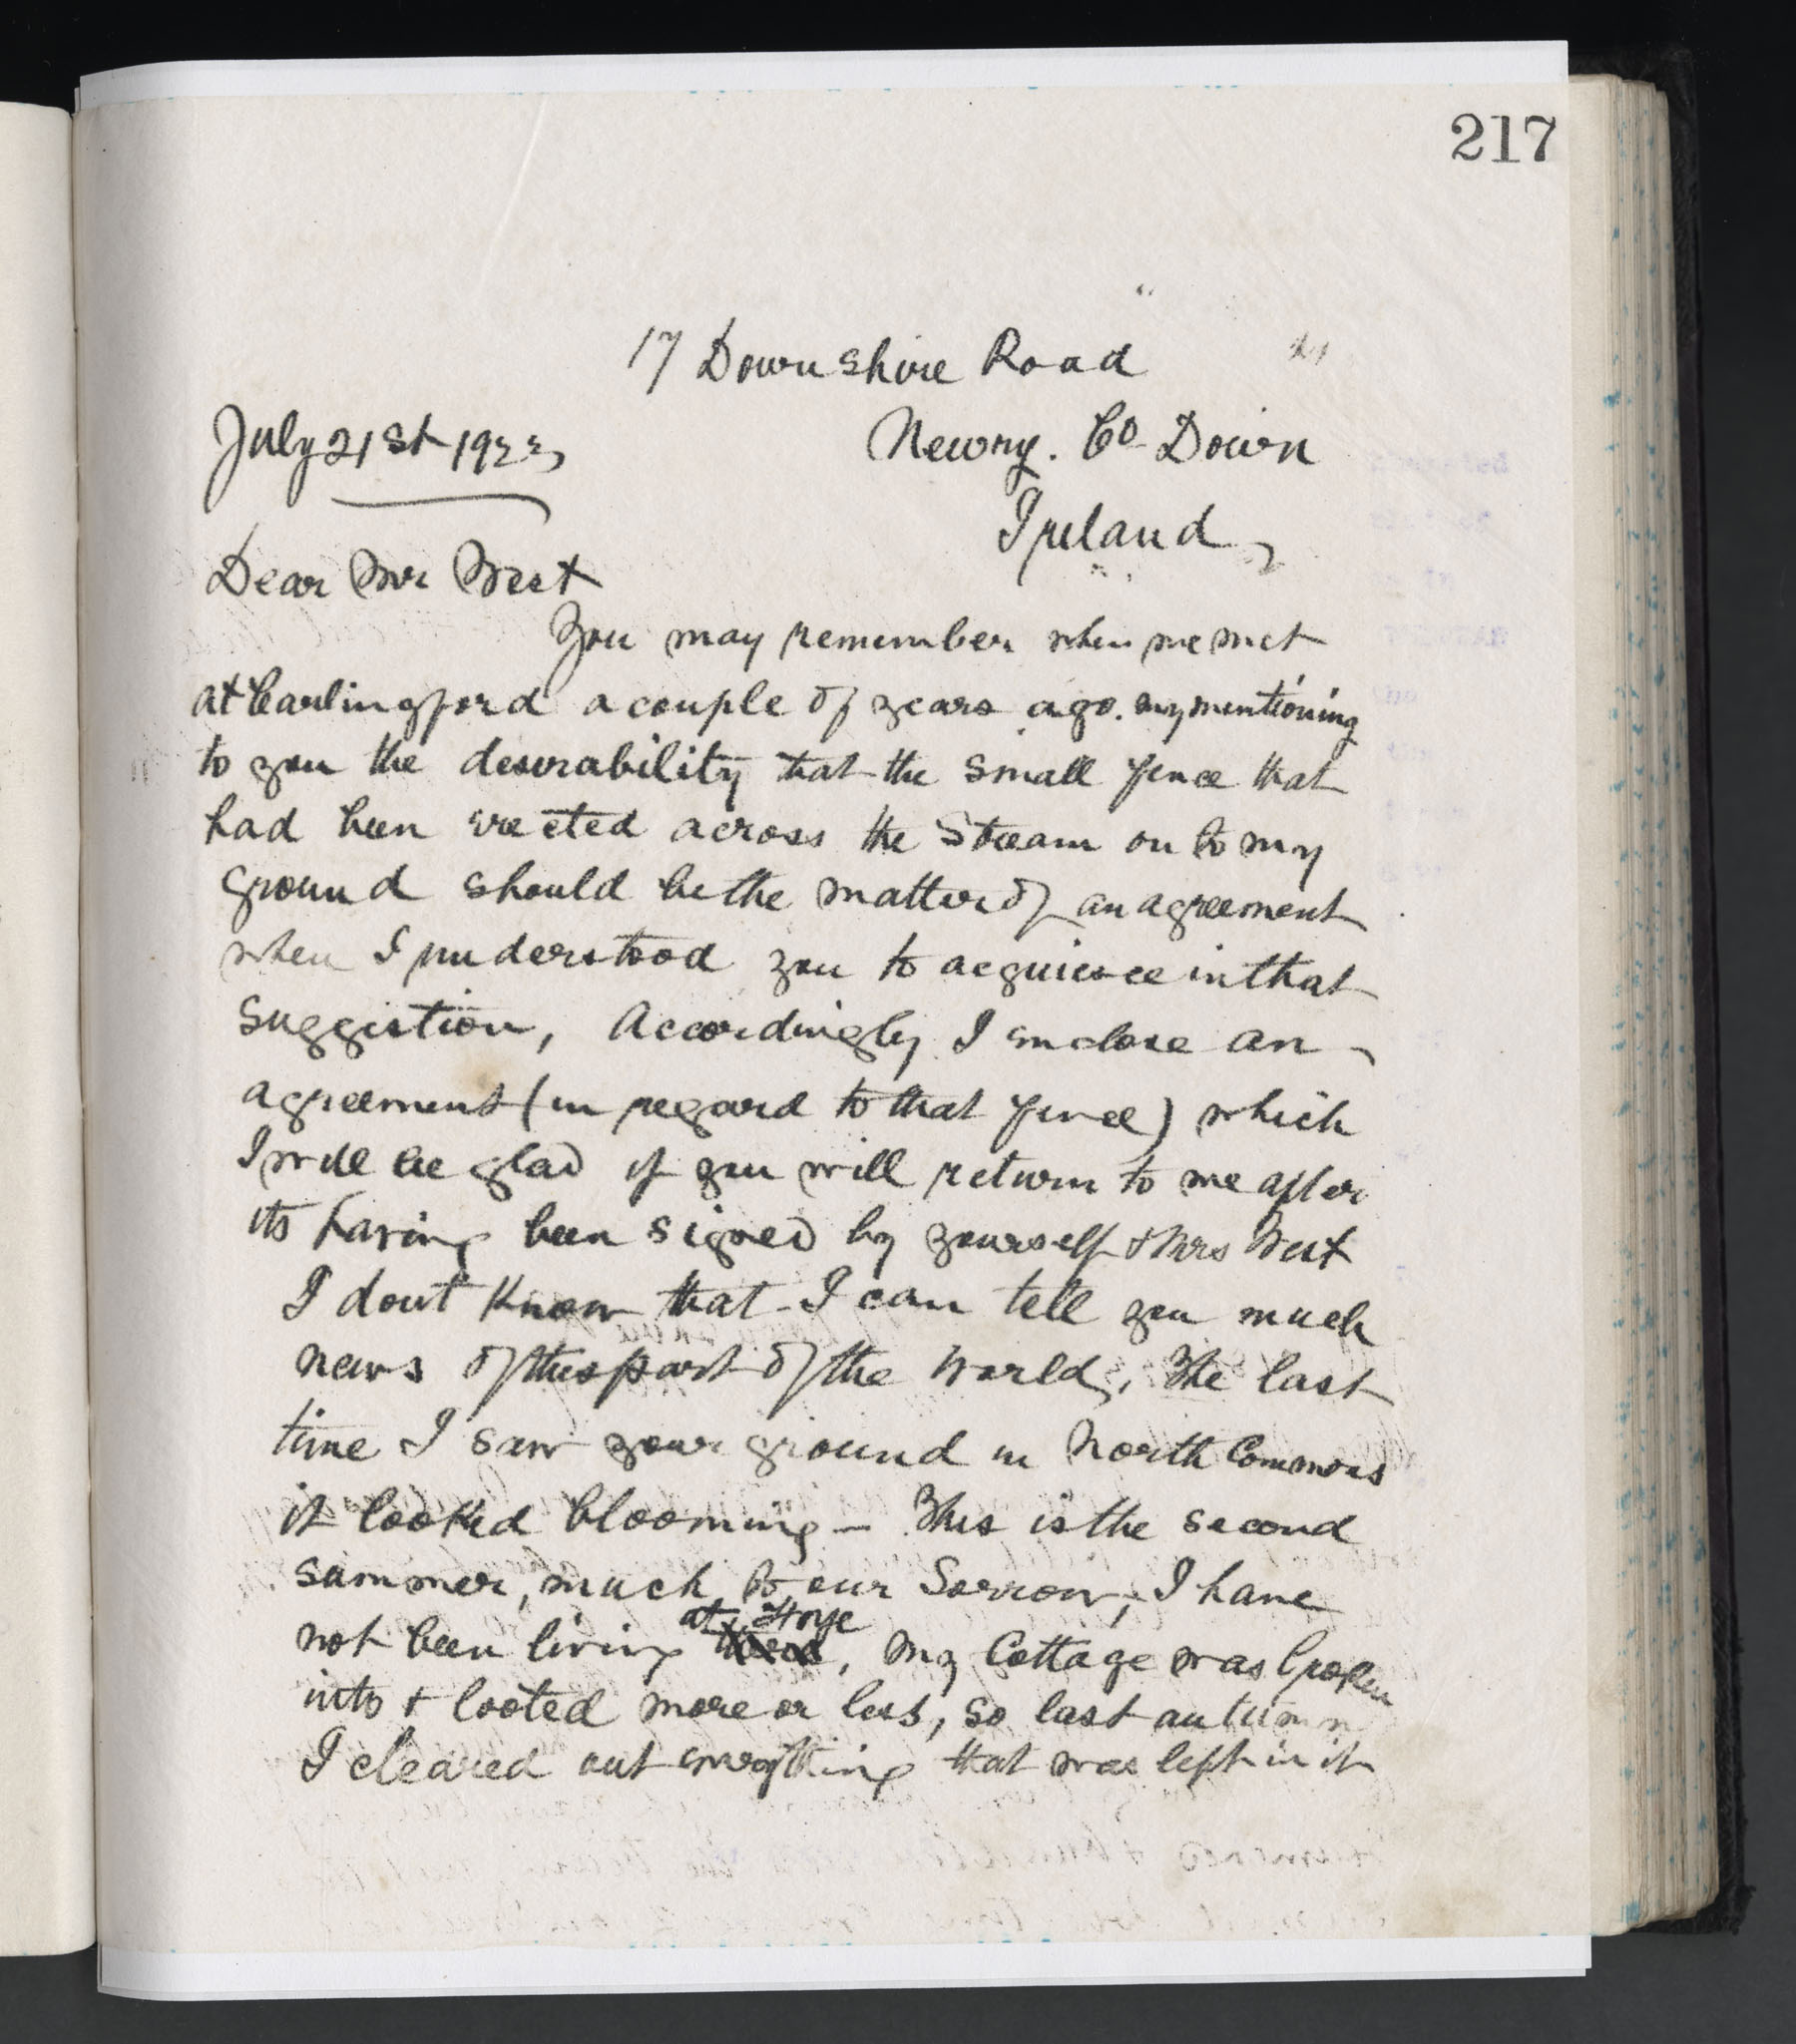 217
17 Downshire Road
July 21st 1923
Newry. Co Down
Ireland
Dear Mr West
You may remember when we met
at Carlingford a couple of years ago. my mentioning
to you the desirability that the small fence that
had been erected across the Stream on to my
ground should be the matter of an agreement
when I understood you to acquiesce in that
suggestion, Accordingly I enclose an
agreement (in regard to that fence) which
I will be glad if you will return to me after
its having been signed by yourself & Mrs West
I dont know that I can tell you much
news of this part of the World, The last
time I saw your ground in North Commons
it looked blooming - This is the second
summer, much to our Sorrow, I have
at
not been living, My Cottage was broken
into & looted more or less, so last autumn
I cleared out everything that was left in it